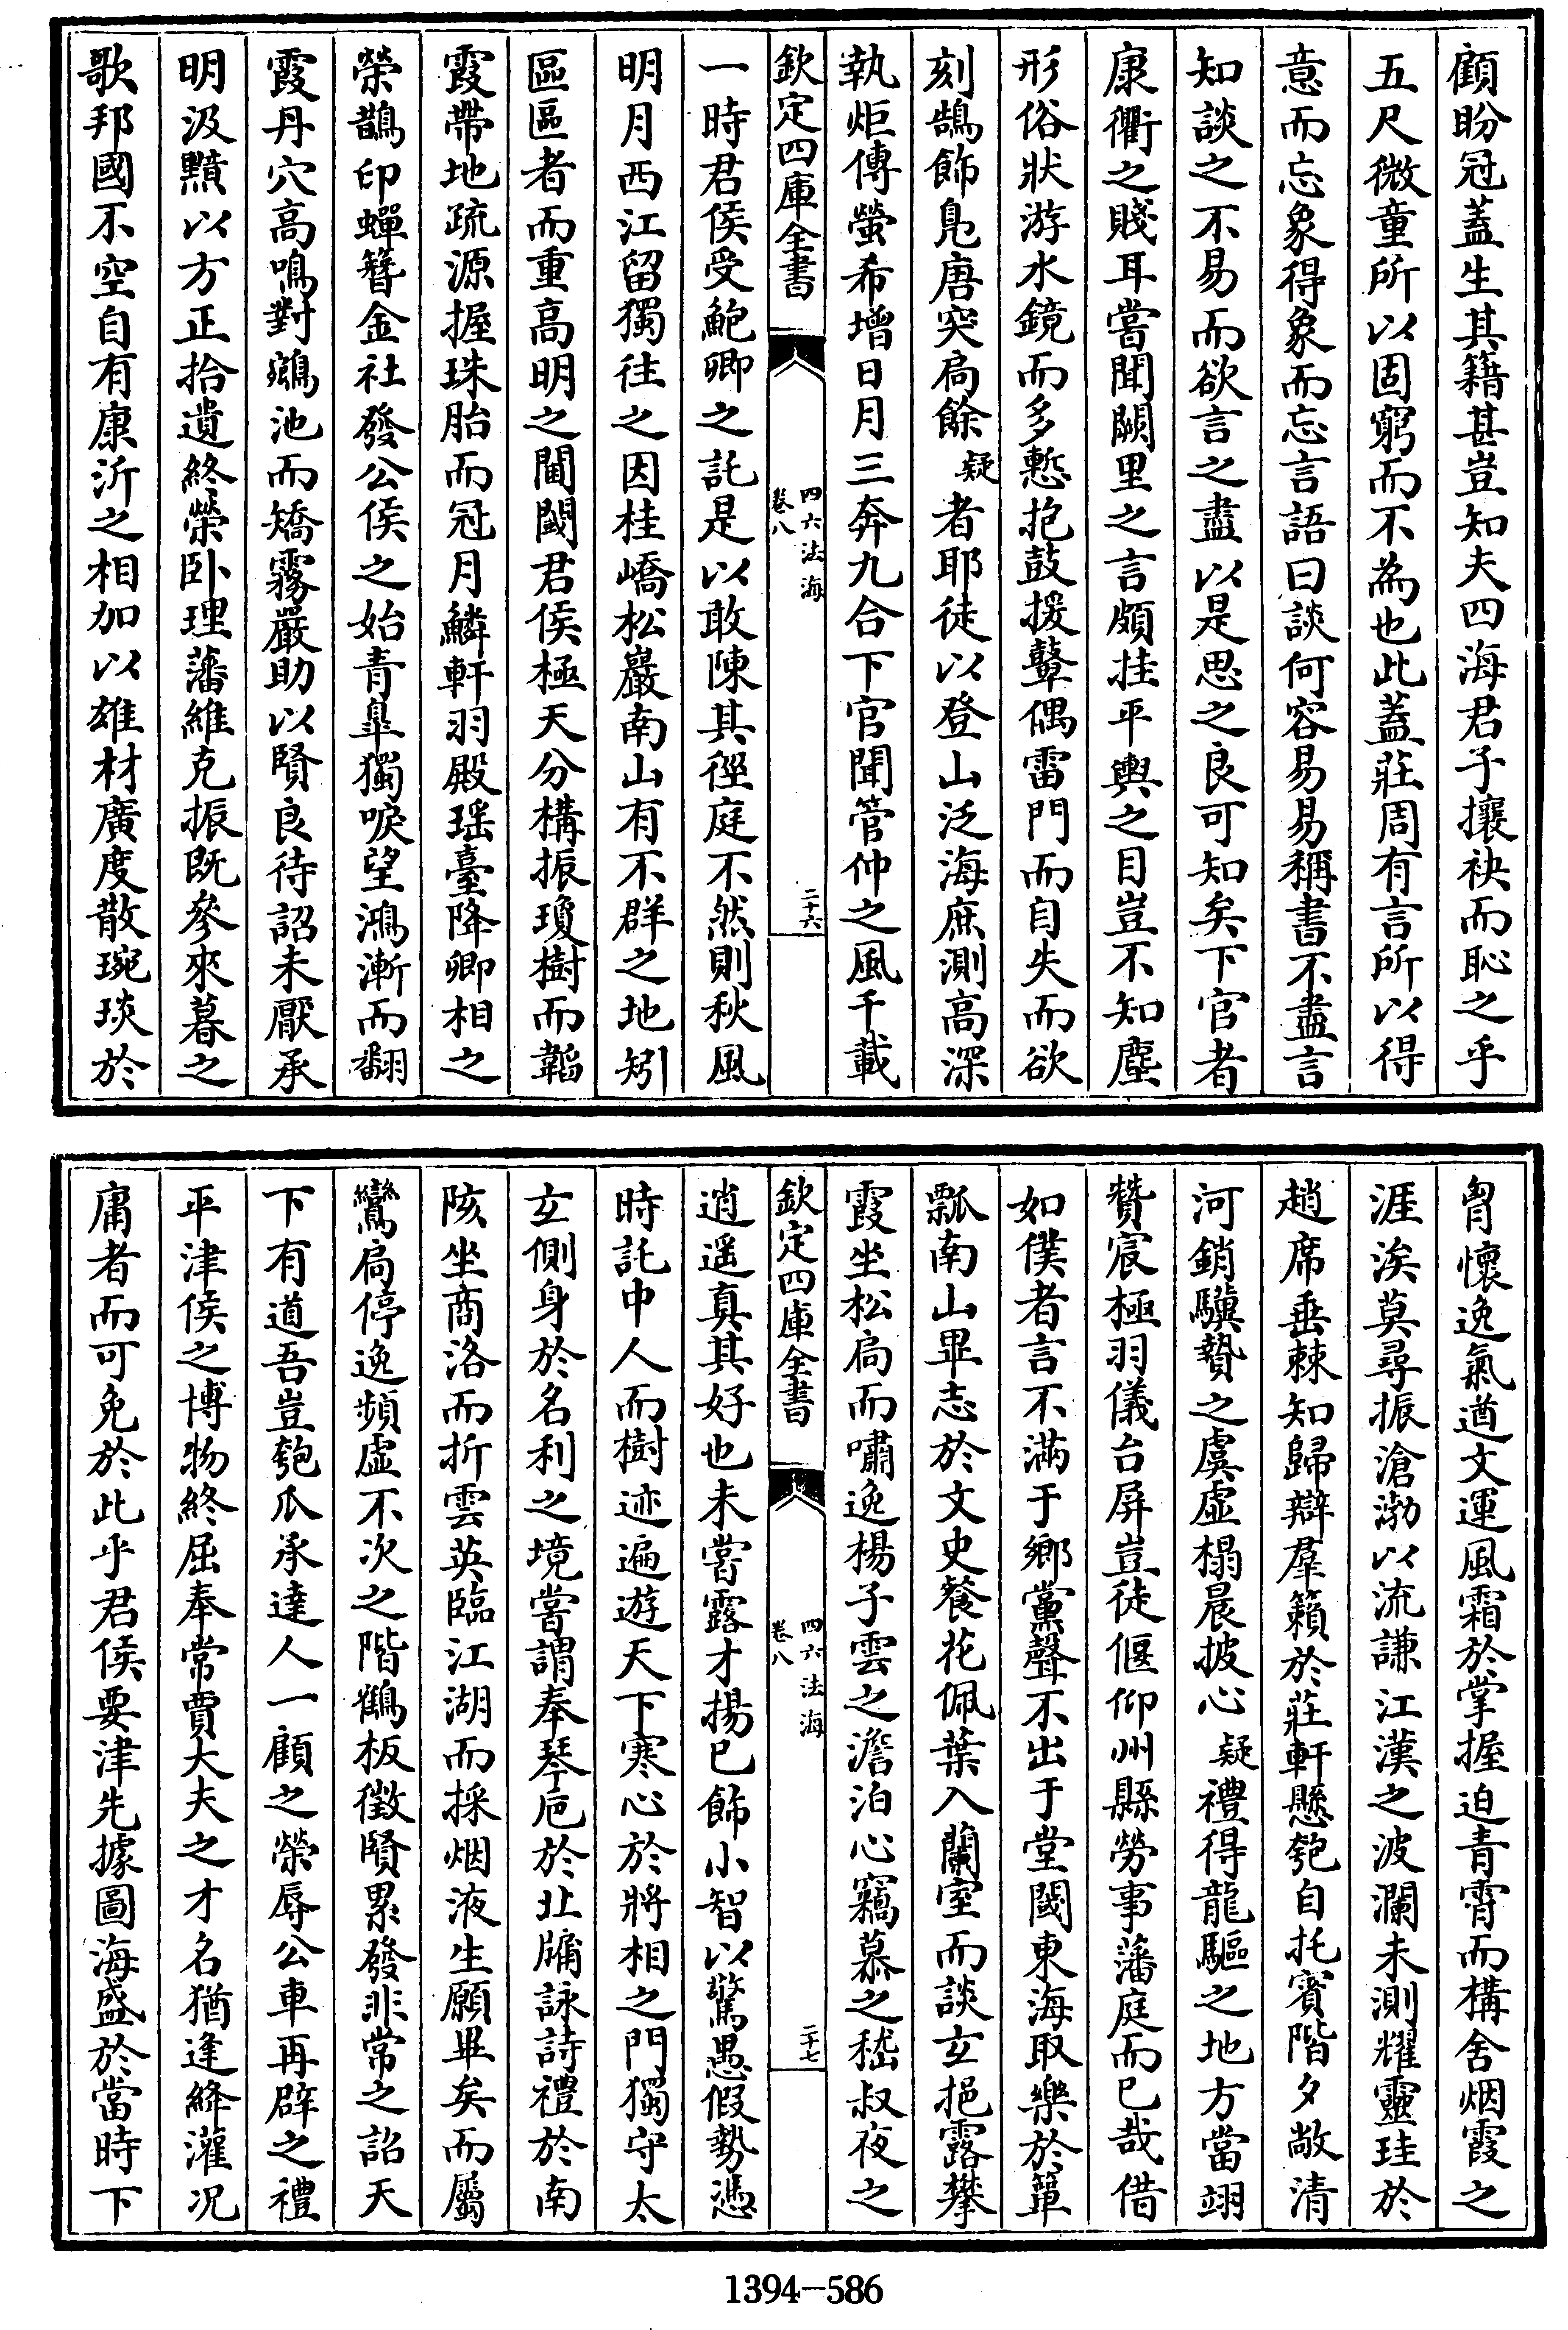 顧盼冠蓋生其籍甚豈知夫四海君子攘袂而恥之乎
五尺微童所以固窮而不為也此蓋莊周有言所以得
意而忘象得象而忘言語曰談何容易易稱書不盡言
知談之不易而欲言之盡以是思之良可知矣下官者
康衢之賤耳嘗聞闕里之言頗挂平輿之目豈不知塵
形俗狀游水鏡而多慙抱鼓援鼙偶雷門而自失而欲
刻鵠飾鳧唐突扃餘疑者耶徒以登山泛海庶測高深
執炬傳螢希增日月三奔九合下官聞管仲之風千載
欽定四庫全書
四六法海
卷八
二十六
一時君侯受鮑卿之託是以敢陳其徑庭不然則秋風
明月西江留獨往之因桂嶠松巖南山有不群之地矧
區區者而重高明之閫閾君侯極天分構振瓊樹而韜
霞帶地疏源握珠胎而冠月鱗軒羽殿瑶臺降卿相之
榮鵲印蟬簪金社發公侯之始青臯獨唳望鴻漸而翻
霞丹穴高鳴對鵷池而矯霧嚴助以賢良待詔未厭承
明汲黯以方正拾遺終榮卧理藩維克振既參來暮之
歌邦國不空自有康沂之相加以雄材廣度散琬琰於
胷懷逸氣遒文運風霜於掌握迫青霄而構舍烟霞之
涯涘莫尋振滄渤以流謙江漢之波瀾未測耀靈珪於
趙席垂棘知歸辯羣籟於莊軒懸匏自托賓階夕敞清
河銷驥贄之虞虚榻晨披心疑禮得龍驅之地方當翊
贊宸極羽儀台屏豈徒偃仰州縣勞事藩庭而已哉借
如僕者言不滿于鄉黨聲不出于堂閾東海取樂於簞
瓢南山畢志於文史餐花佩葉入蘭室而談玄挹露攀
霞坐松扃而嘯逸楊子雲之澹泊心竊慕之嵇叔夜之
欽定四庫全書
四六法海
卷八
二十七
逍遥真其好也未嘗露才揚已飾小智以驚愚假勢憑
時託中人而樹迹遍遊天下寒心於將相之門獨守太
玄側身於名利之境嘗謂奉琴巵於北牖詠詩禮於南
陔坐商洛而折雲英臨江湖而採烟液生願畢矣而屬
鸞扃停逸頻虚不次之階鶴板徵賢累發非常之詔天
下有道吾豈匏瓜承達人一顧之榮辱公車再辟之禮
平津侯之博物終屈奉常賈大夫之才名猶逢絳灌况
庸者而可免於此乎君侯要津先據圖海盛於當時下
1394-586